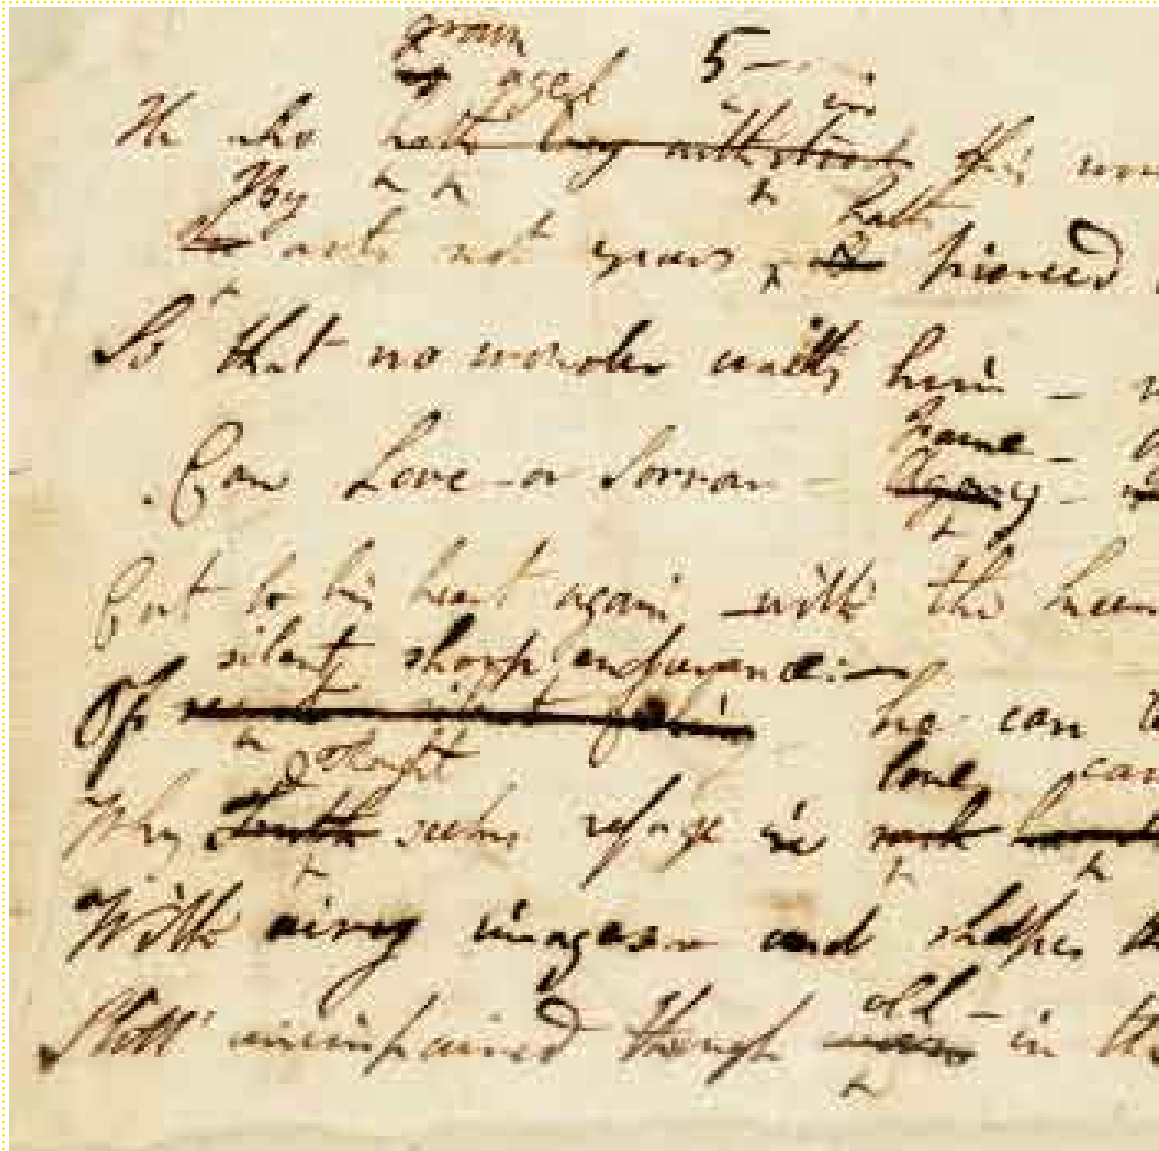 grown
aged 5 - in
He who hath long withstood this
By hath
acts not years pierced
So that no wonder waits him -
fame -
Can Love or Sorrow - Agony -
Cut to his heart again with the keen
silent sharp endurance: -
Of he can
thought lone, cav
Why Truth seeks refuge in
With airy images and shapes
old -
Still unimpaired though in